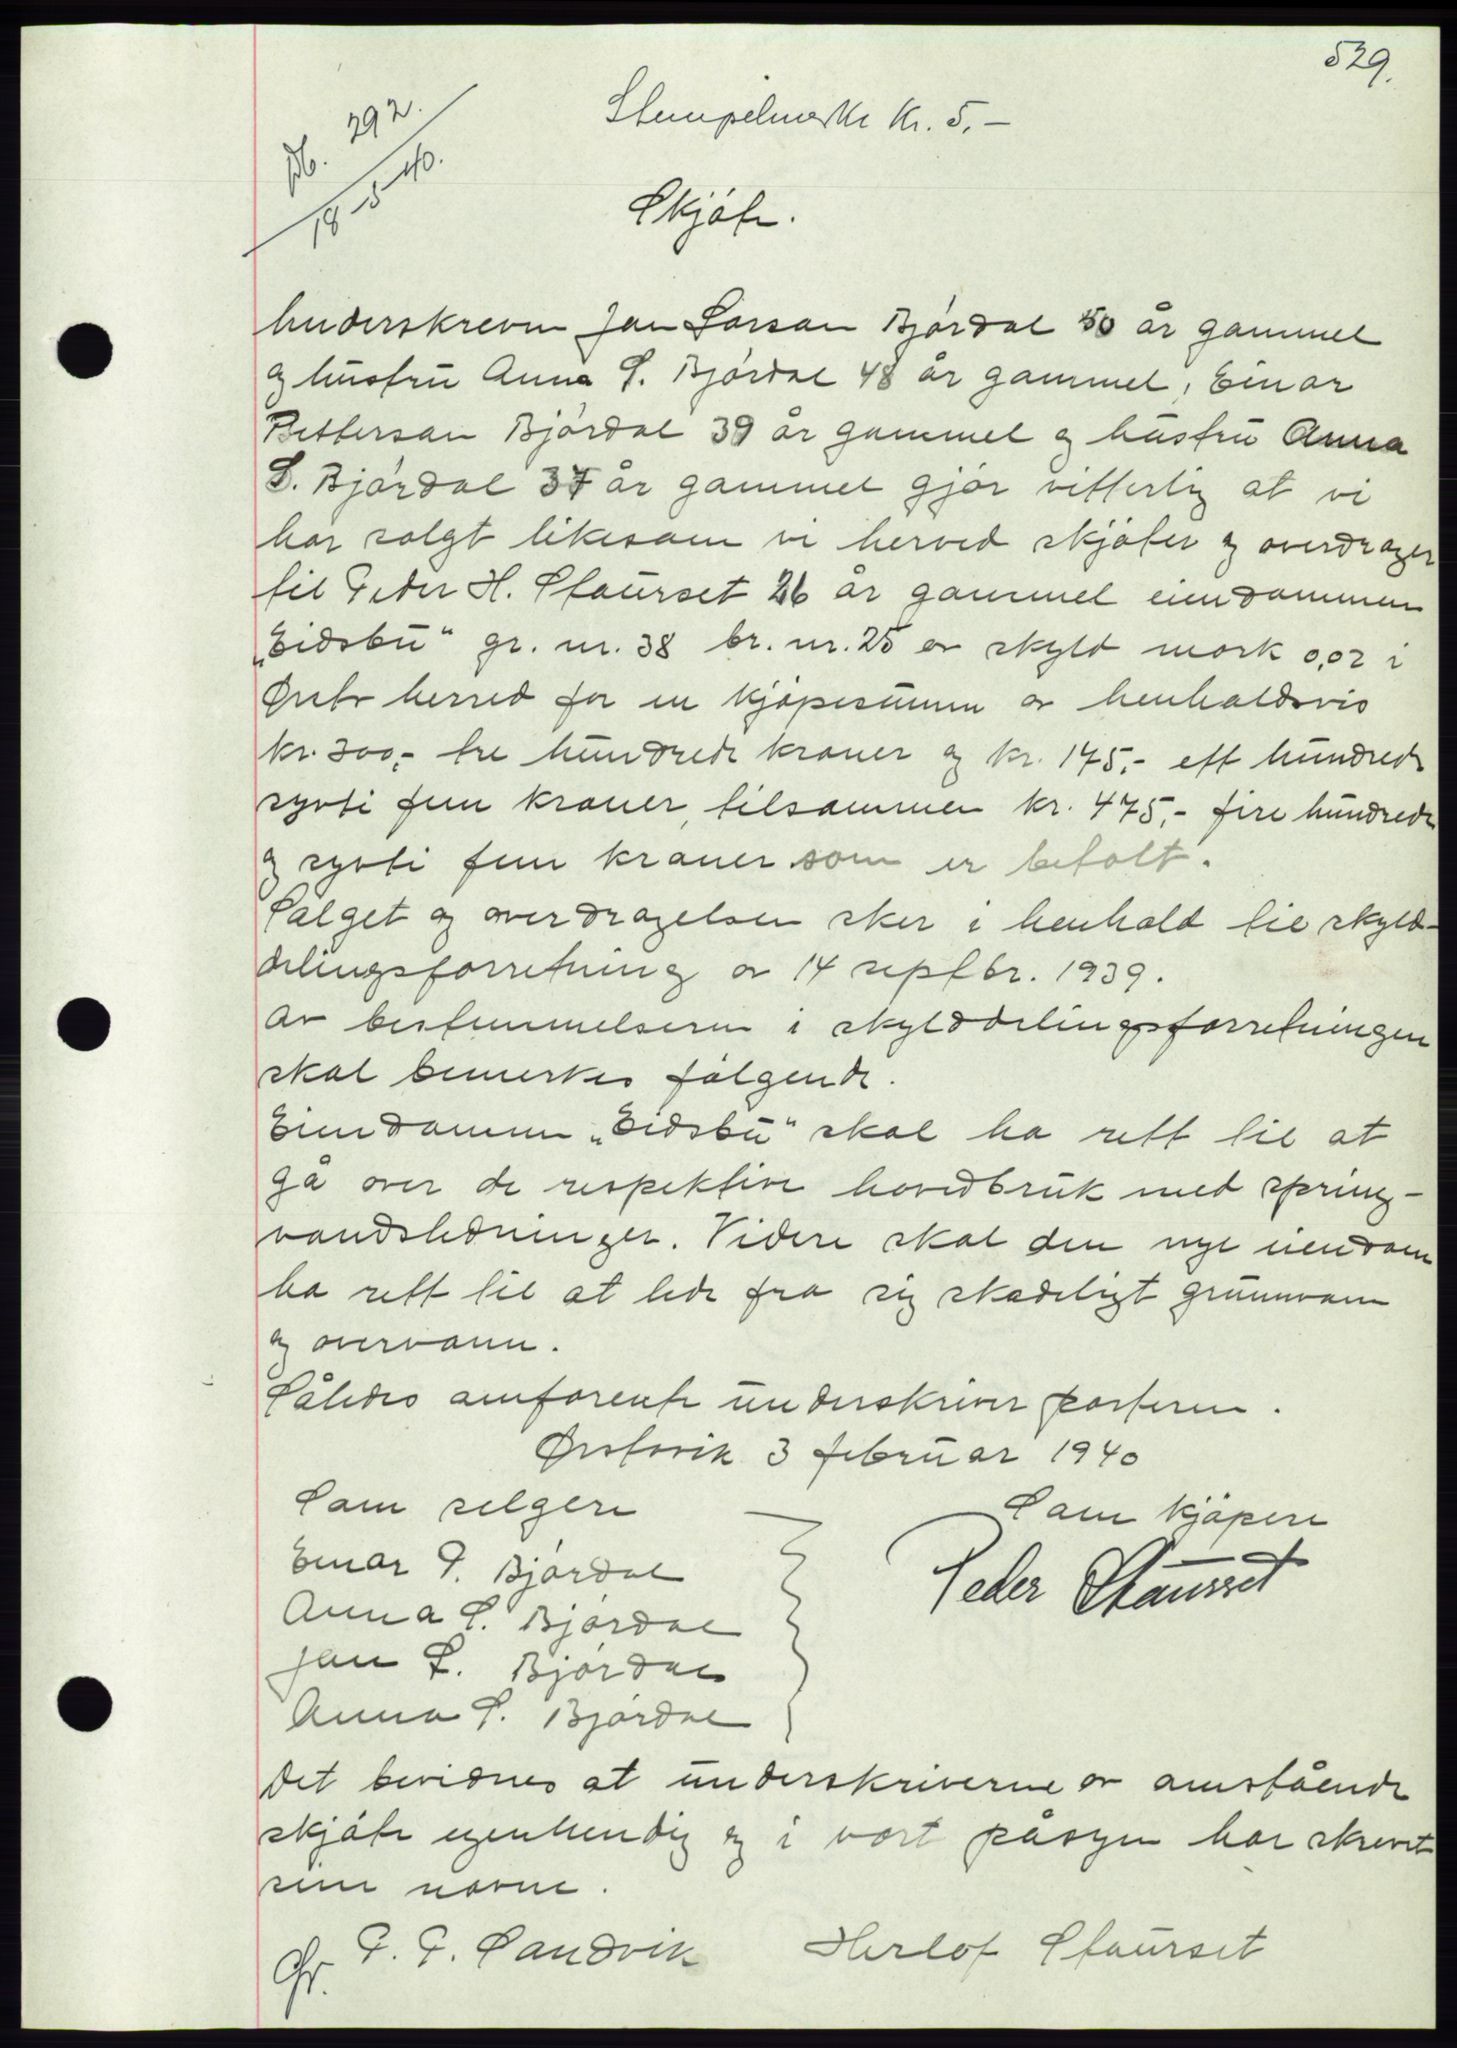 529.
Stempelmerke kr. 5.-
Db. 292.
18-5-40.
Skjøte.
Underskreven Jon Larsen Bjørdal 50 år gammel
og hustru Anna S. Bjørdal 48 år gammel, Einar
Pettersen Bjørdal 39 år gammel og hustru Anna
S. Bjørdal 37 år gammel gjør vitterlig at vi
har solgt likesom vi herved skjøter og overdrager
til Peder H. Staurset 26 år gammel eiendommen
„Eidsbu" gr. nr. 38 br. nr. 25 av skyld mark 0,02 i
Ørsta herred for en kjøpesum av henholdsvis
kr. 300,- tre hundrede kroner og kr. 175,- ett hundrede
sytti fem kroner, tilsammen kr. 475,- fire hundrede
og sytti fem kroner som er betalt.
Salget og overdragelsen sker i henhold til skyld-
delingsforretning av 14 septbr. 1939.
Av bestemmelserne i skylddelingsforretningen
skal bemerkes følgende.
Eiendommen „Eidsbu" skal ha rett til at
gå over de respektive hovedbruk med spring-
vandsledninger. Videre skal den nye eiendom
ha rett til at lede fra sig skadeligt grunnvann
og overvann.
Således omforente underskriver parterne.
Ørstavik 3 februar 1940
Som selgere
Som kjøpere
Einar P. Bjørdal
Peder Staurset
Anna S. Bjørdal
Jon L. Bjørdal
Anna S. Bjørdal
Det bevidnes at underskriverne av omstående
skjøte egenhendig og i vort påsyn har skrevet
sine navne.
P. P. Sandvik Herlof Staurset